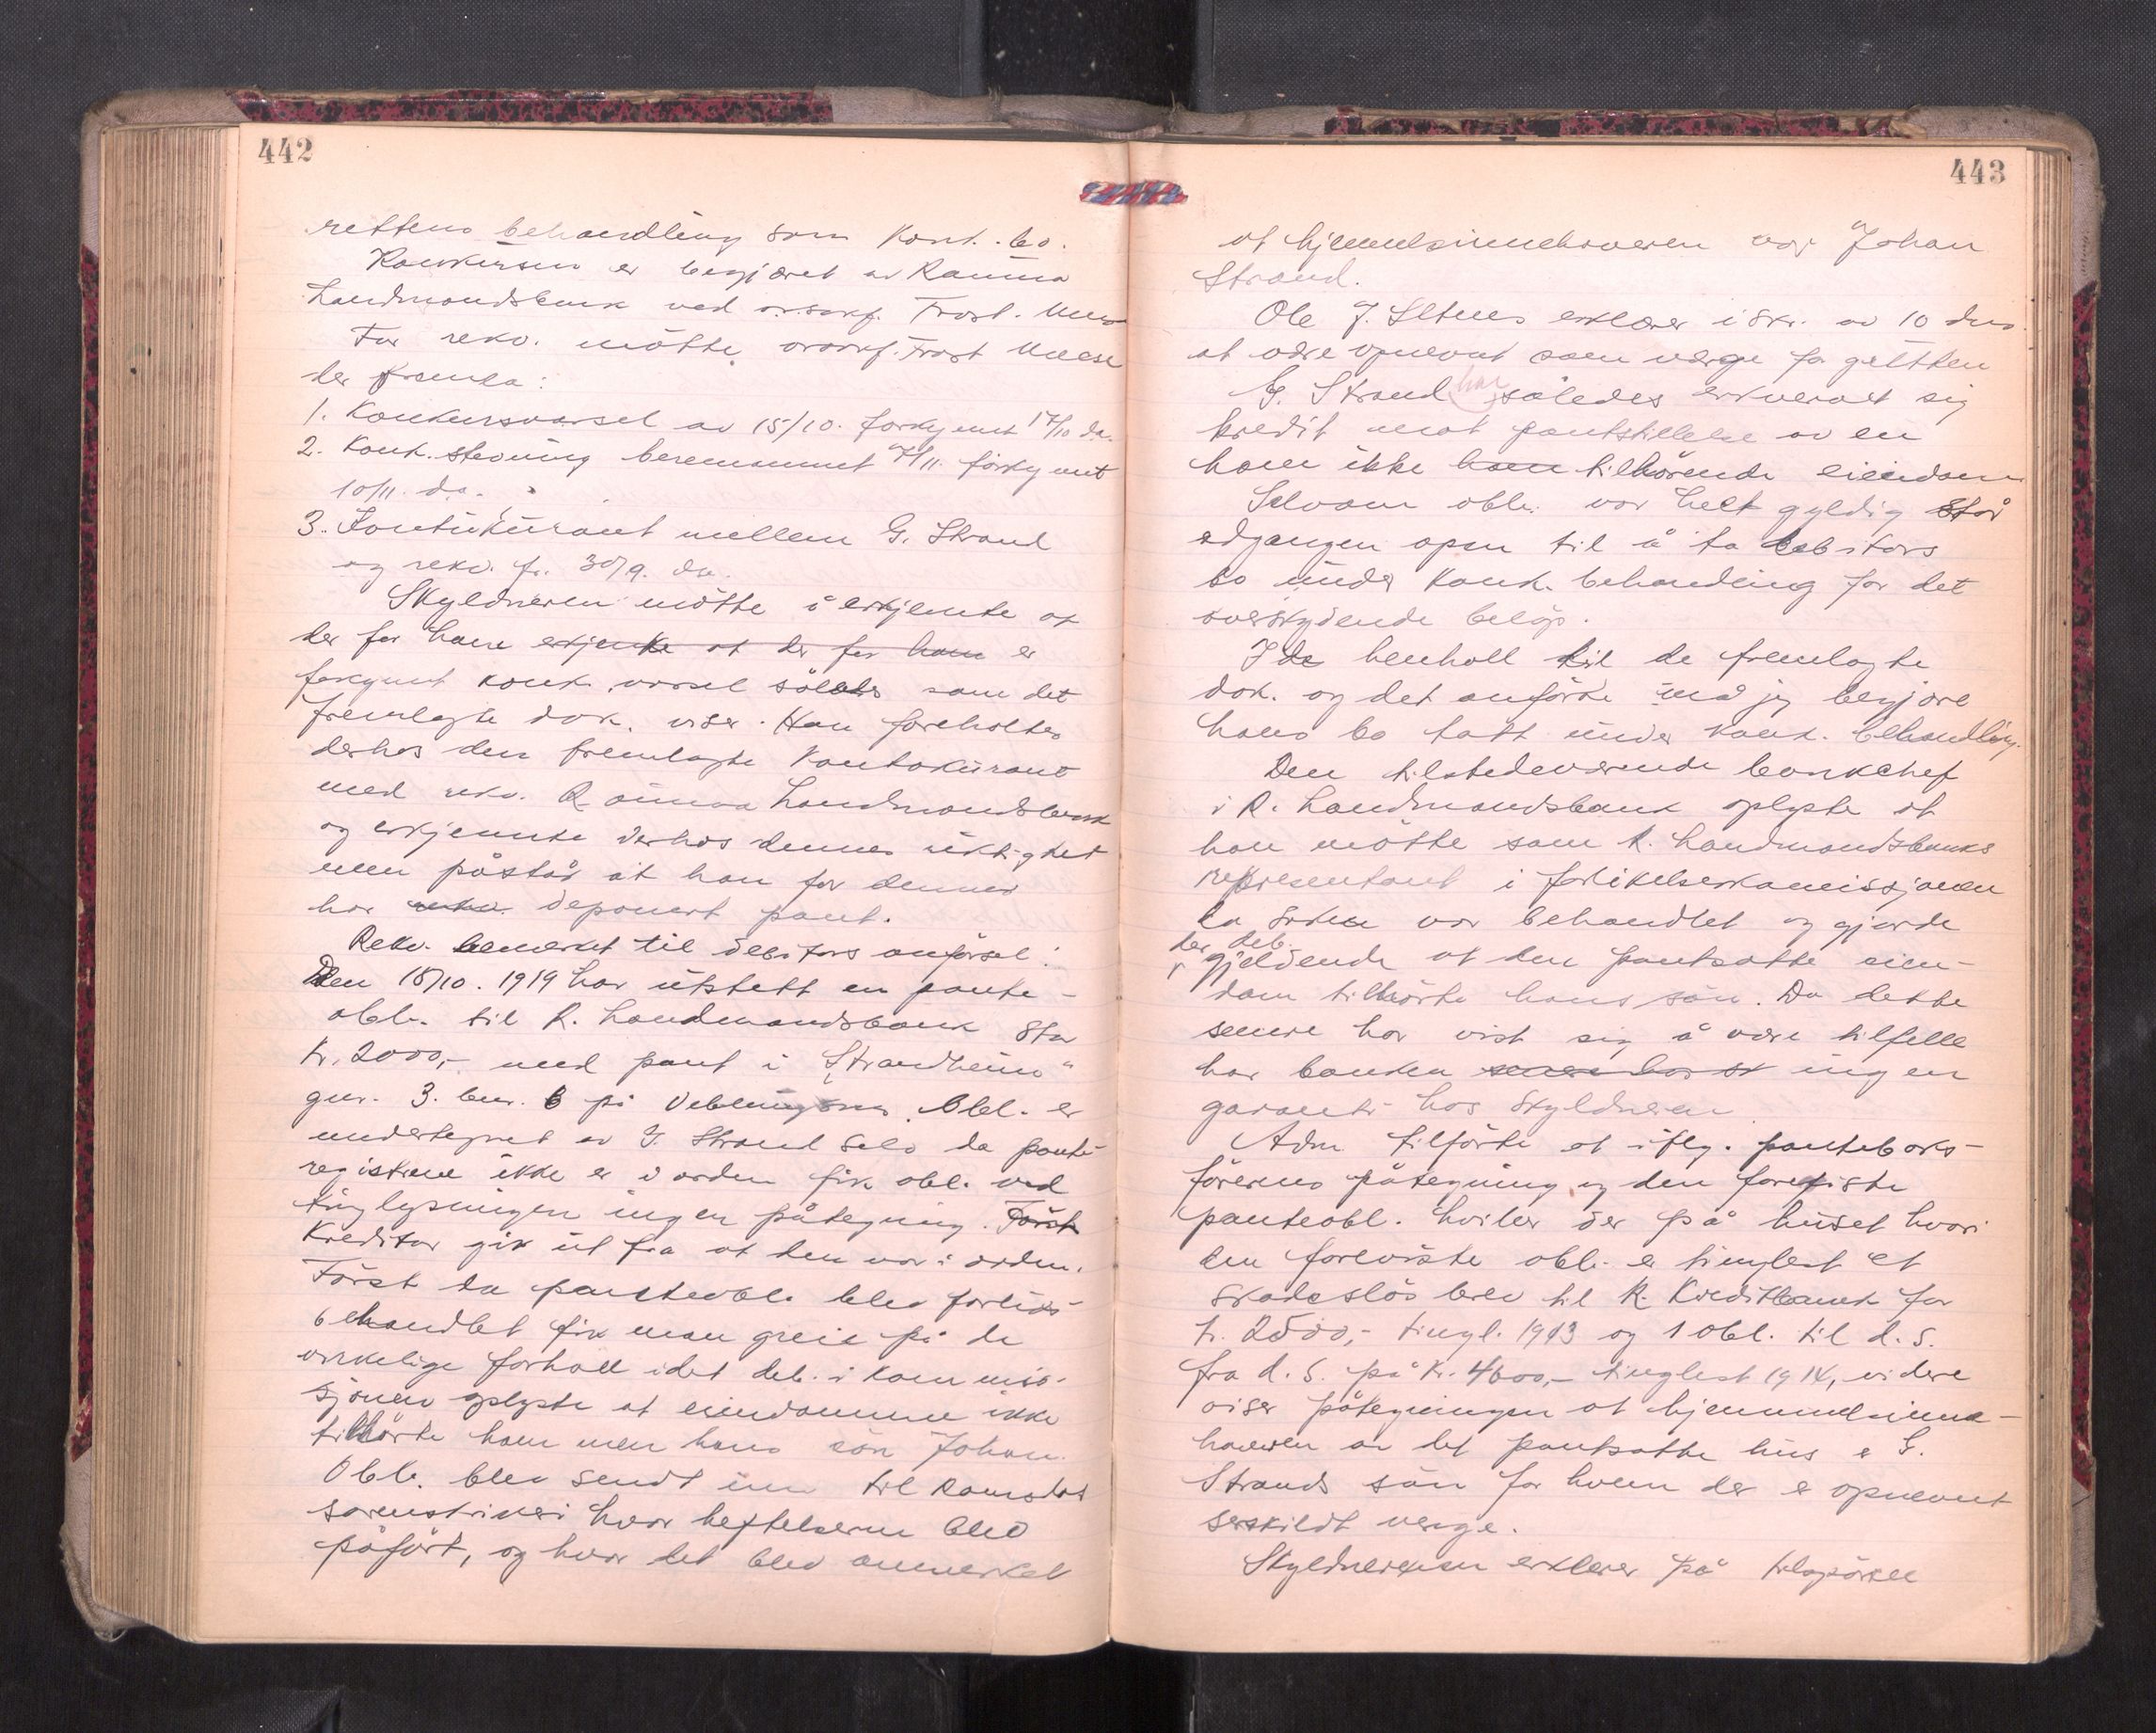 442
rettens behandling som konk. bo.
Konkursen er begjæret av Rauma
Landmandsbank ved o.r.sakf. Frost.
For rekv. mötte o.r.sakf. Frost
der fremla:
1. Konkursvarsel av 15/10. forkynt 17/10 ds.
2. Konk. stevning beremmet 7/11. forkynt
10/11. ds.
3. Kontokurant mellem G. Strand
og rekv. fr. 30/9. ds.
Skyldneren mötte å erkjente at
der for ham erkjente at der for ham er
forkynt konk. varsel således som det
fremlagte dok. viser. Han foreholtes
derhos den fremlagte Kontokurant
med rekv. Rauma Landmandsbank
og erkjennte derhos dennes riktighet
men påstår at han for dennes
har rekv. deponert pant.
Rekv. bemerket til debitors anförsel:
Den 18/10. 1919 har utstett en pante-
obl. til R. Landmandsbank stor
kr. 2000,- med pant i "Strandheim"
gnr. 3. bnr. 6 på Veblungsnes. Obl. er
undertegnet av G. Strand selv da pante-
registrene ikke er i orden fik obl. ved
tinglysningen ingen påtegning. Först
Kreditor gik ut fra at den var i orden.
Först da panteobl. blev forliks-
behandlet fik man greie på de
virkelige forhold idet deb. i kommis-
sjonen oplyste at eiendommen ikke
tilhörte ham men hans sön Johan.
Obl. blev sendt inn til Romsdal
sorenskriveri hvor heftelserne blev
påfört, og hvor det blev anmerket
443
at hjemmelsinnehaveren var Johan
Strand.
Ole J. Setnes erklærer i skr. av 10 dns.
at være opnevnt som værge for gutten
G. Strand har således erkvervet sig
kredit mot pantstillelse av en
ham ikke ham tilhörende eiendom
Selvom obl. var helt gyldig står
adgangen open til å ta debitors
bo under konk. behandling for det
overskydende belöp.
I de henholl til de fremlagte
dok. og det anförte må jeg begjære
hans bo tatt under konk. behandling.
Den tilstedeværende bankchef
i R. Landmandsbank oplyste at
han mötte som R. Landmandsbanks
representant i forlikelseskommissjonen
da saken var behandlet og gjorde
der deb.
gjeldende at den pantsatte eien-
dom tilhörte hans sön. Da dette
senere har vist sig å være tilfelle
har banken ingen
garanti hos skyldneren
Adm tilförte at iflg. panteboks-
förerens påtegning og den foreviste
panteobl. hviler der på huset hvori
den foreviste obl. er tinglest et
skadeslösbrev til R. Kreditbank for
kr. 2500,- tingl. 1913 og 1 obl. til d. s.
fra d. s. på kr. 4600,- tinglest 1914, videre
viser påtegningen at hjemmelsinne-
haveren av det pantsatte hus er G.
Strands sön for hvem der er opnevnt
serskildt verge.
Skyldneren erklærer på tilspörsel